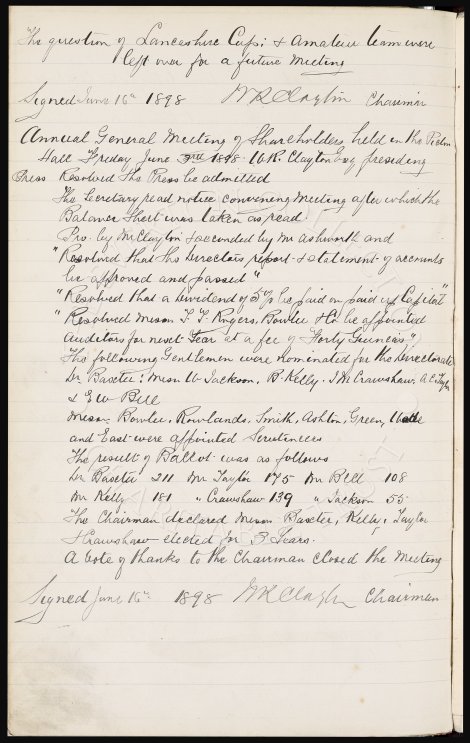 The question of Lancashire Cups & Amateur team were
left over for a future Meeting
Signed June 16th 1898 W R Clayton Chairman
Annual General Meeting of Shareholders, held in the Picton
Hall Friday June 3rd 1898 W.R. Clayton Esq presiding
Press Resolved the Press be admitted
The Secretary read notice convening Meeting after which the
Balance Sheet was taken as read
Pro. by Mr Clayton & seconded by Mr Ashworth and
"Resolved that the Directors report & statement of accounts
be approved and passed"
"Resolved that a Dividend of 5% be paid on paid up Capital"
"Resolved Messrs T. T. Rogers, Bowler & Co be appointed
Auditors for next Year at a fee of Forty Guineas"
The following Gentlemen were nominated for the Directorate
Dr Baxter: Messrs W Jackson, B. Kelly, J M Crawshaw, A. C. Taylor
& E W Bell
Messrs Bowler, Rowlands, Smith, Ashton, Green, Wade
and East were appointed Scrutineers
The result of Ballot was as follows
Dr Baxter 211 Mr Taylor 175 Mr Bell 108
Mr Kelly 181 " Crawshaw 139 " Jackson 55
The Chairman declared Messrs Baxter, Kelly, Taylor
& Crawshaw elected for 3 Years.
A Vote of thanks to the Chairman closed the Meeting
Signed June 16th 1898 W R Clayton Chairman